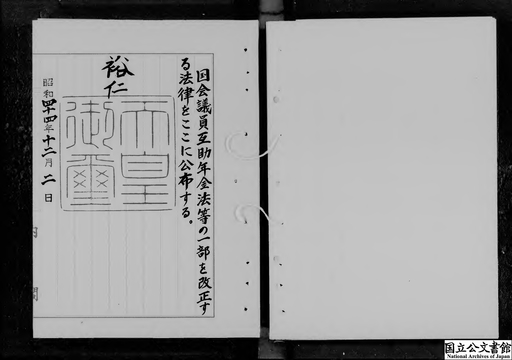 国会議員互助年金法等の一部を改正す
る法律をここに公布する。
裕仁
天皇
御璽
昭和四十四年十二月二日
内閣
国立公文書館
National Archives of Japan